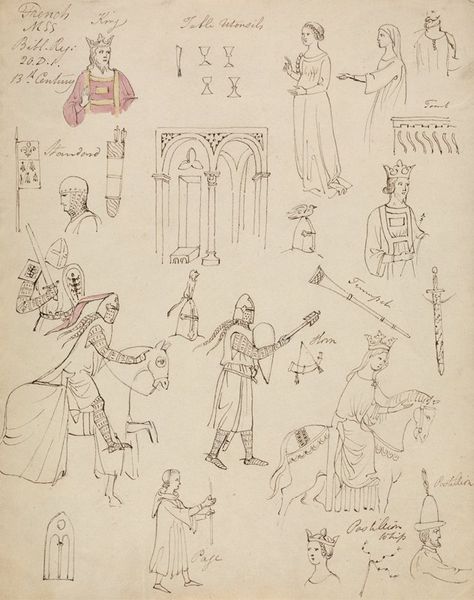 French
MSS
Bibl. Reg:
20. D. 1.
13th Century
King
Table Utensils
Tent
Standard
Trumpet
Horn
Page
Postillion
Whip
Postillion